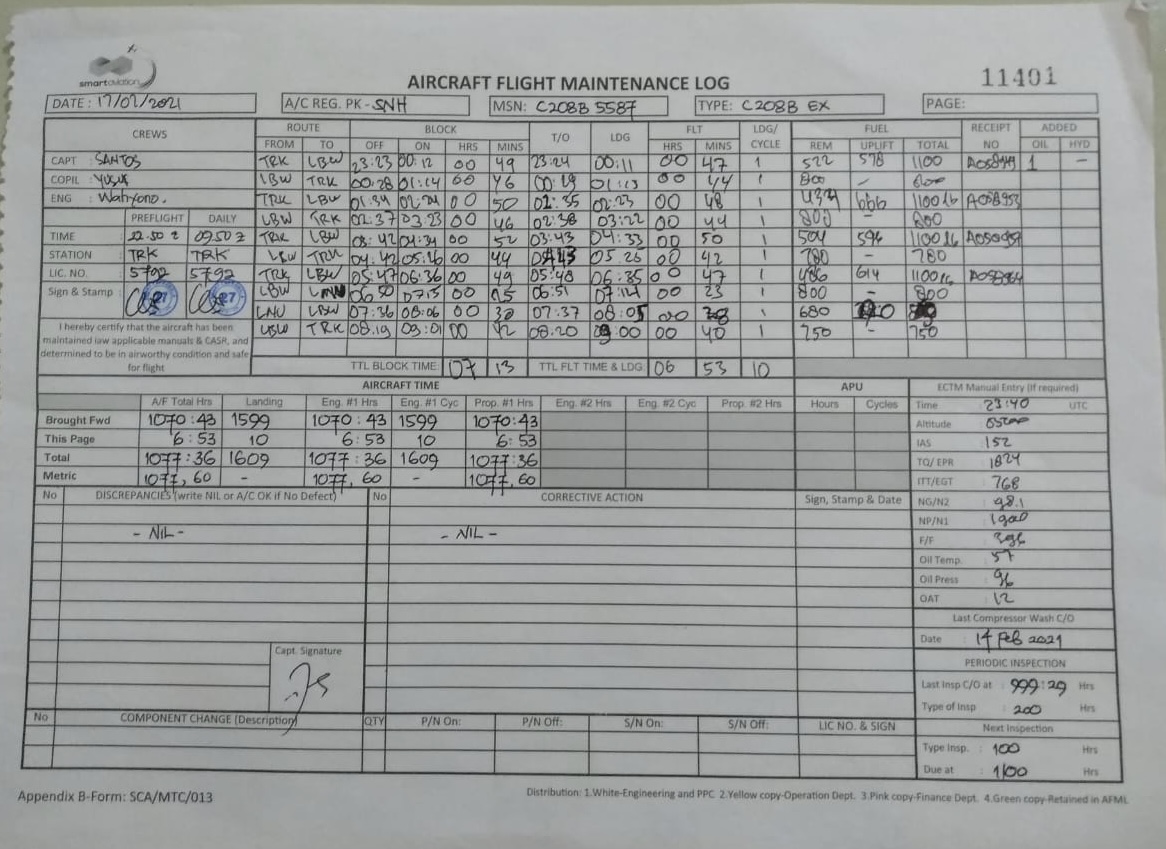 smartaviation
AIRCRAFT FLIGHT MAINTENANCE LOG
11401
DATE : 17/02/2021 A/C REG. PK - SNH MSN: C208B 5587 TYPE: C208B EX PAGE:
CREWS ROUTE BLOCK T/O LDG FLT LDG/CYCLE FUEL RECEIPT NO ADDED
FROM TO OFF ON HRS MINS HRS MINS REM UPLIFT TOTAL OIL HYD
CAPT : SANTOS TRK LBW 23:23 00:12 00 49 23:24 00:11 00 47 1 522 578 1100 1 -
COPIL : LBW TRK 00:28 01:14 00 46 00:29 01:13 00 44 1 800 - 800
ENG : Wahyono. TRK LBW 01:34 02:24 00 50 02:23 00 48 1 666 1100 lb A058953
PREFLIGHT DAILY LBW TRK 02:37 03:23 00 46 02:38 03:22 00 44 1 800 - 800
TIME 22.50 z 09.50 z TRK LBW 03:42 04:34 00 52 03:43 04:33 00 50 1 504 596 1100 lb
STATION TRK TRK LBW TRK 04:42 05:26 00 44 05.26 00 42 1 780 - 780
LIC. NO. 5792 5792 TRK LBW 05:47 06:36 00 49 05:48 06:35 00 47 1 486 614 1100 lb
Sign & Stamp LBW LNU 06 50 07:15 00 25 06:51 07:14 00 23 1 800 - 800
LNU LBW 07:36 08:06 00 30 07:37 08:05 00 1 680
I hereby certify that the aircraft has been maintained iaw applicable manuals & CASR, and determined to be in airworthy condition and safe for flight
LBW TRK 08.19 09:01 00 42 08.20 09:00 00 40 1 750 - 750
TTL BLOCK TIME: 07 13 TTL FLT TIME & LDG 06 53 10
AIRCRAFT TIME APU ECTM Manual Entry (If required)
A/F Total Hrs Landing Eng. #1 Hrs Eng. #1 Cyc Prop. #1 Hrs Eng. #2 Hrs Eng. #2 Cyc Prop. #2 Hrs Hours Cycles Time : 23:40 UTC
Brought Fwd 1070:43 1599 1070:43 1599 1070:43 Altitude :
This Page 6:53 10 6:53 10 6:53 IAS : 152
Total 1077:36 1609 1077:36 1609 1077:36 TQ/ EPR : 1824
Metric 1077,60 - 1077,60 - 1077,60 ITT/EGT : 768
No DISCREPANCIES (write NIL or A/C OK if No Defect) No CORRECTIVE ACTION Sign, Stamp & Date NG/N2 : 98.1
- NIL - - NIL - NP/N1 : 1900
F/F : 396
Oil Temp. : 57
Oil Press : 96
OAT : 12
Last Compressor Wash C/O
Date : 14 Feb 2021
Capt. Signature
PERIODIC INSPECTION
Last Insp C/O at : 999:29 Hrs
Type of Insp : 200 Hrs
No COMPONENT CHANGE (Description) QTY P/N On: P/N Off: S/N On: S/N Off: LIC NO. & SIGN Next Inspection
Type Insp. : 100 Hrs
Due at : 1100 Hrs
Appendix B-Form: SCA/MTC/013
Distribution: 1.White-Engineering and PPC 2.Yellow copy-Operation Dept. 3.Pink copy-Finance Dept. 4.Green copy-Retained in AFML